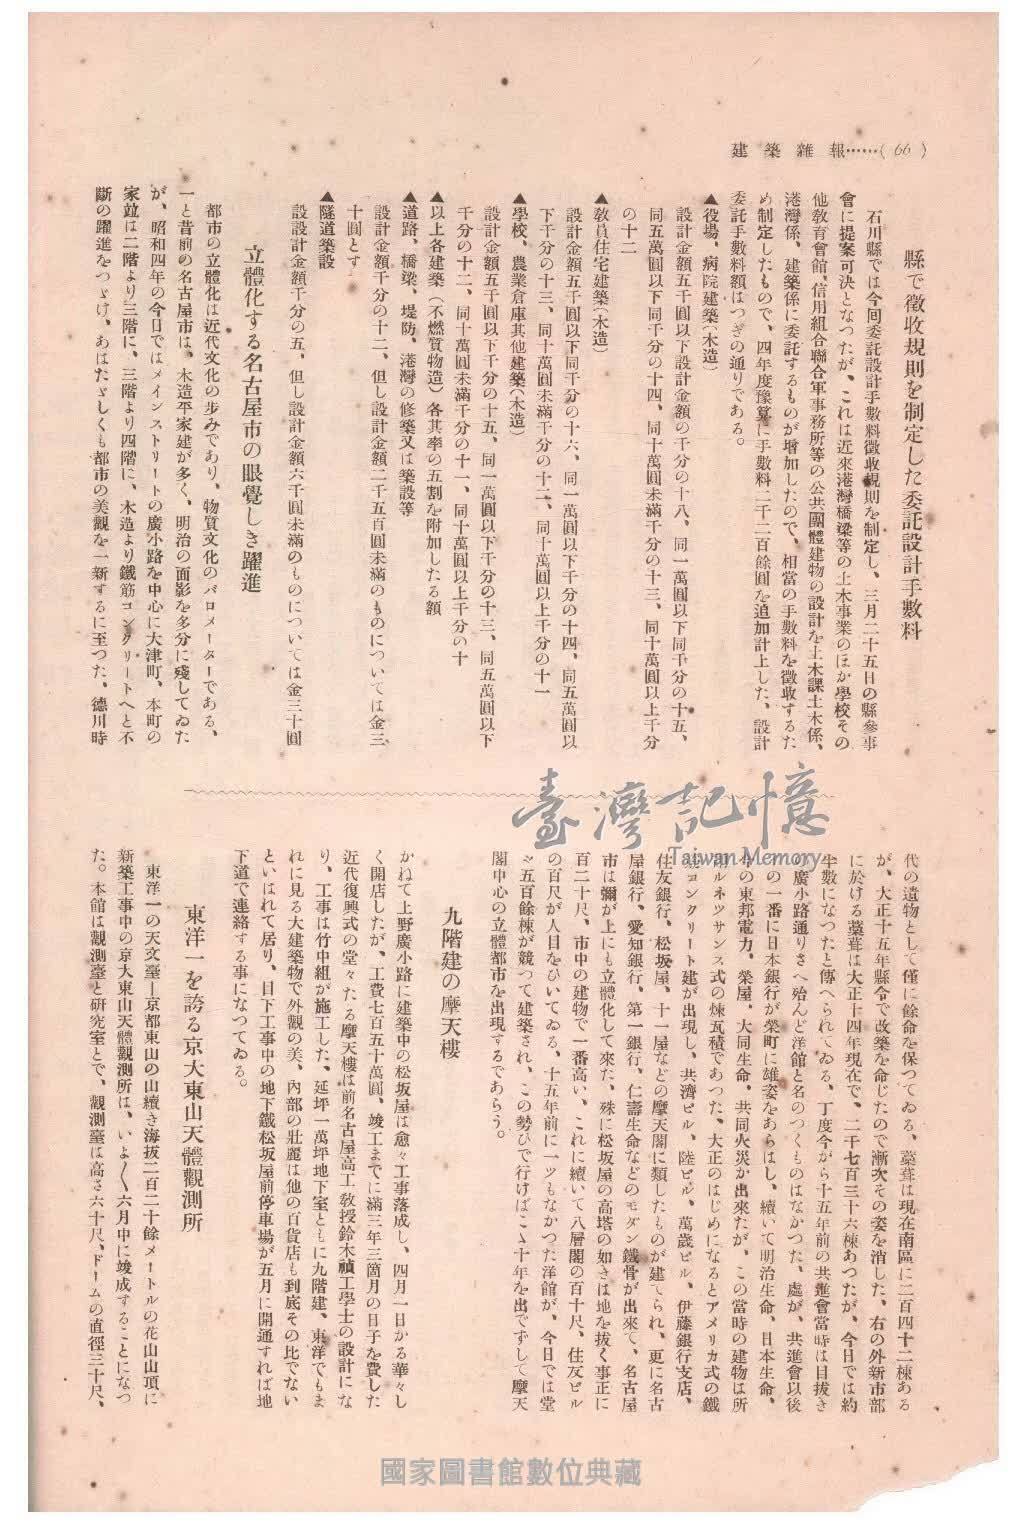 建築雜報……( 66 )
縣で徵收規則を制定した委託設計手數料
石川縣では今囘委託設計手數料徵收規則を制定し、三月二十五日の縣參事
會に提案可決となつたが、これは近來港灣橋梁等の土木事業のほか學校その
他敎育會館、信用組合聯合軍事務所等の公共團體建物の設計を土木課土木係、
港灣係、建築係に委託するものが增加したので、相當の手數料を徵收するた
め制定したもので、四年度豫算に手數料二千二百餘圓を追加計上した、設計
委託手數料額はつぎの通りである。
▲役場、病院建築(木造)
設計金額五千圓以下設計金額の千分の十八、同一萬圓以下同千分の十五、
同五萬圓以下同千分の十四、同十萬圓未滿千分の十三、同十萬圓以上千分
の十二
▲敎員住宅建築(木造)
設計金額五千圓以下同千分の十六、同一萬圓以下千分の十四、同五萬圓以
下千分の十三、同十萬圓未滿千分の十二、同十萬圓以上千分の十一
▲學校、農業倉庫其他建築(木造)
設計金額五千圓以下千分の十五、同一萬圓以下千分の十三、同五萬圓以下
千分の十二、同十萬圓未滿千分の十一、同十萬圓以上千分の十
▲以上各建築(不燃質物造)各其率の五割を附加したる額
▲道路、橋梁、堤防、港灣の修築又は築設等
設計金額千分の十二、但し設計金額二千五百圓未滿のものについては金三
十圓とす
▲隧道築設
設計金額千分の五、但し設計金額六千圓未滿のものについては金三十圓
立體化する名古屋市の眼覺しき躍進
都市の立體化は近代文化の步みであり、物質文化のバロメーターである、
一と昔前の名古屋市は、木造平家建が多く、明治の面影を多分に殘してゐた
が、昭和四年の今日ではメインストリートの廣小路を中心に大津町、本町の
家竝は二階より三階に、三階より四階に、木造より鐵筋コンクリートへと不
斷の躍進をつゞけ、あはたゞしくも都市の美觀を一新するに至つた、德川時
代の遺物として僅に餘命を保つてゐる、藁葺は現在南區に二百四十二棟ある
が、大正十五年縣令で改築を命じたので漸次その姿を消した、右の外新市部
に於ける藁葺は大正十四年現在で、二千七百三十六棟あつたが、今日では約
半數になつたと傳へられてゐる、丁度今から十五年前の共進會當時は目拔き
の廣小路通りさへ殆んど洋館と名のつくものはなかつた、處が、共進會以後
の一番に日本銀行が榮町に雄姿をあらはし、續いて明治生命、日本生命、
今の東邦電力、榮屋、大同生命、共同火災か出來たが、この當時の建物は所
謂ルネツサンス式の煉瓦積であつた、大正のはじめになるとアメリカ式の鐵
筋コンクリート建が出現し、共濟ビル、陸ビル、萬歲ビル、伊藤銀行支店、
住友銀行、松坂屋、十一屋などの摩天閣に類したものが建てられ、更に名古
屋銀行、愛知銀行、第一銀行、仁壽生命などのモダン鐵骨が出來て、名古屋
市は彌が上にも立體化して來た、殊に松坂屋の高塔の如きは地を拔く事正に
百二十尺、市中の建物で一番高い、これに續いて八層閣の百十尺、住友ビル
の百尺が人目をひいてゐる、十五年前に一ツもなかつた洋館が、今日では堂
々五百餘棟が競つて建築され、この勢ひで行けばこゝ十年を出でずして摩天
閣中心の立體都市を出現するであらう。
九階建の摩天樓
かねて上野廣小路に建築中の松坂屋は愈々工事落成し、四月一日から華々し
く開店したが、工費七百五十萬圓、竣工までに滿三年三箇月の日子を費した
近代復興式の堂々たる摩天樓は前名古屋高工敎授鈴木禎工學士の設計にな
り、工事は竹中組が施工した、延坪一萬坪地下室ともに九階建、東洋でもま
れに見る大建築物で外觀の美、內部の壯麗は他の百貨店も到底その比でない
といはれて居り、目下工事中の地下鐵松坂屋前停車場が五月に開通すれば地
下道で連絡する事になつてゐる。
東洋一を誇る京大東山天體觀測所
東洋一の天文臺—京都東山の山續き海拔二百二十餘メートルの花山山項に
新築工事中の京大東山天體觀測所は、いよ〱六月中に竣成することになつ
た。本館は觀測臺と硏究室とで、觀測臺は高さ六十尺、ドームの直徑三十尺、
臺灣記憶
Taiwan Memory
國家圖書館數位典藏